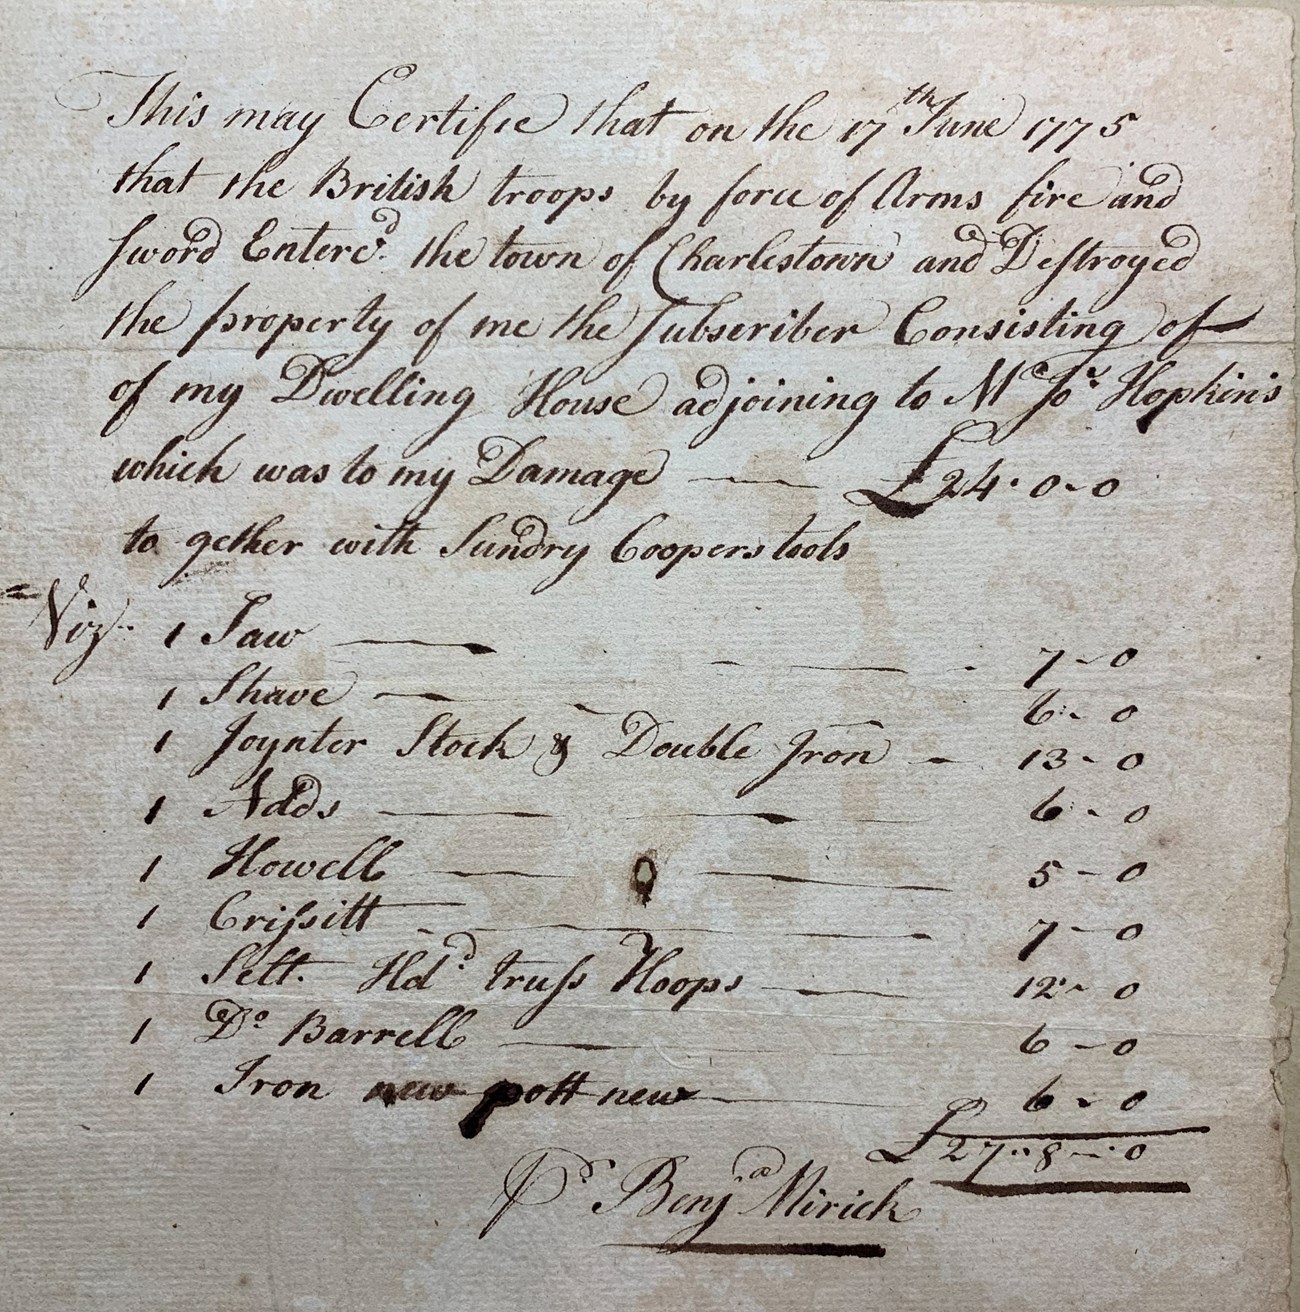 This may Certifie that on the 17th June 1775
that the British troops by force of Arms fire and
sword Enterd. the town of Charlestown and Destroyed
the property of me the Subscriber Consisting of
of my Dwelling House adjoining to Mr Jos. Hopkins
which was to my Damage — £24.0-0
to gether with Sundry Coopers tools
= Viz. 1 Saw — 7-0
1 Shave — 6-0
1 Joynter Stock & Double Iron — 13-0
1 Adds — 6-0
1 Howell — 5-0
1 Crissitt — 7-0
1 Sett. Hdd. truss Hoops — 12-0
1 Do Barrell — 6-0
1 Iron new pott new — 6-0
£27..8-0
Pr Benja Mirick